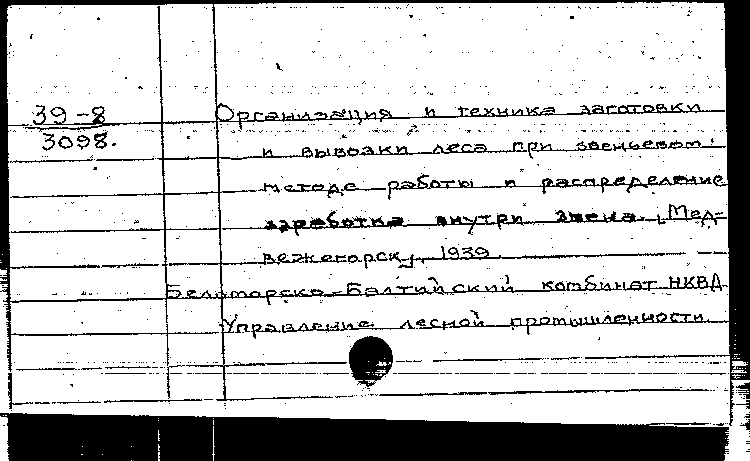 39-8
3098.
Организация и техника заготовки
и вывозки леса при звеньевом
методе работы и распределение
заработка внутри звена. [Мед-
вежегорск], 1939.
Беломорско-Балтийский комбинат НКВД
Управление лесной промышленности